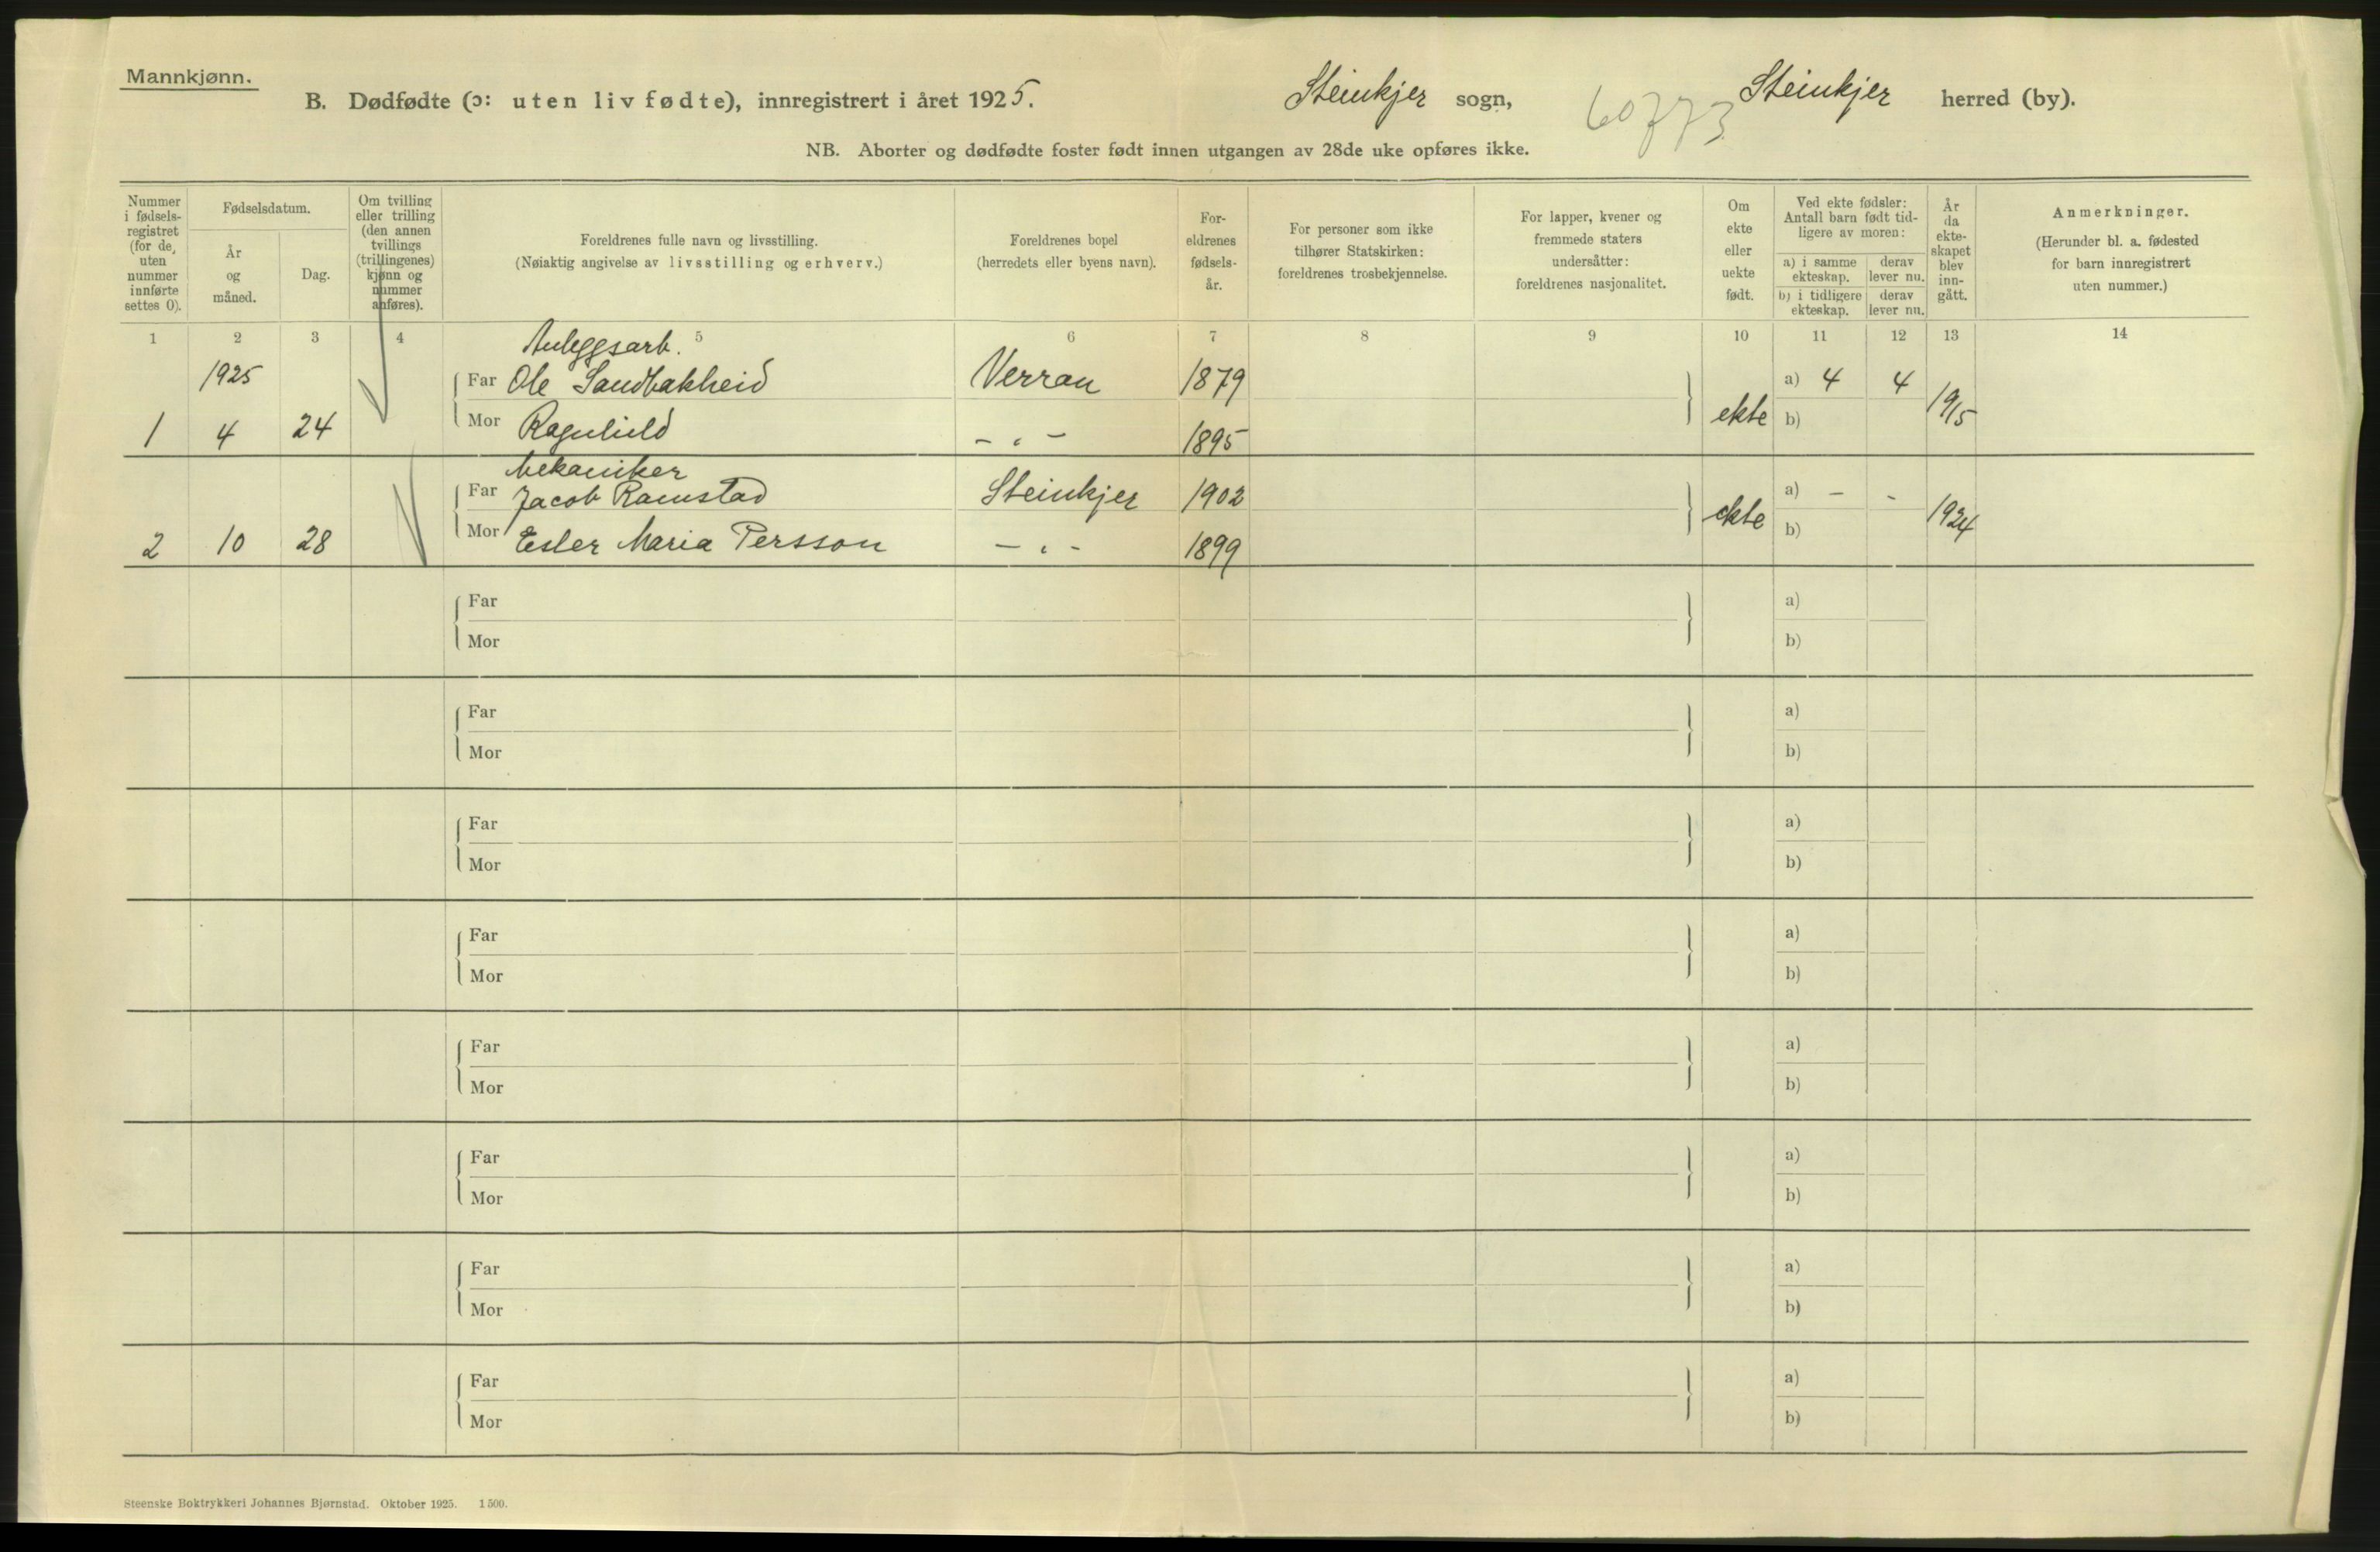 Mannkjønn.
B. Dødfødte (ɔ: uten liv fødte), innregistrert i året 1925.
Steinkjer sogn,
60773
Steinkjer herred (by).
NB. Aborter og dødfødte foster født innen utgangen av 28de uke opføres ikke.
Nummer
i fødsels-
registret
(for de
uten
nummer
innførte
settes 0).
Fødselsdatum.
År
og
måned.
Dag.
Om tvilling
eller trilling
(den annen
tvillings
(trillingenes)
kjønn og
nummer
anføres).
Foreldrenes fulle navn og livsstilling.
(Nøiaktig angivelse av livsstilling og erhverv.)
Foreldrenes bopel
(herredets eller byens navn).
For-
eldrenes
fødsels-
år.
For personer som ikke
tilhører Statskirken:
foreldrenes trosbekjennelse.
For lapper, kvener og
fremmede staters
undersåtter:
foreldrenes nasjonalitet.
Om
ekte
eller
uekte
født.
Ved ekte fødsler:
Antall barn født tid-
ligere av moren:
a) i samme
ekteskap.
derav
lever nu.
b) i tidligere
ekteskap.
derav
lever nu.
År
da
ekte-
skapet
blev
inn-
gått.
Anmerkninger.
(Herunder bl. a. fødested
for barn innregistrert
uten nummer.)
1 2 3 4 5 6 7 8 9 10 11 12 13 14
Anleggsarb.
1925 Far Ole Sandbakheid Verran 1879 a) 4 4
1 4 24 Mor Ragnhild - " - 1895 ekte b) 1915
Mekaniker
Far Jacob Ramstad Steinkjer 1902 a) - -
2 10 28 Mor Ester Maria Persson - " - 1899 ekte b) 1924
Far a)
Mor b)
Far a)
Mor b)
Far a)
Mor b)
Far a)
Mor b)
Far a)
Mor b)
Far a)
Mor b)
Far a)
Mor b)
Far a)
Mor b)
Steenske Boktrykkeri Johannes Bjørnstad. Oktober 1925. 1500.